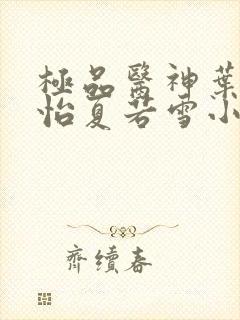 極品醫神葉
怡夏若雪小
齊續春